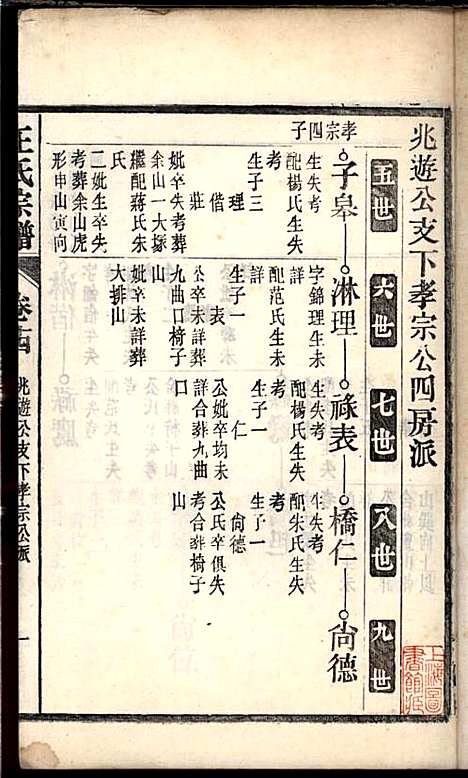 兆遊公支下孝宗公四房派
五世
六世
七世
八世
九世
孝宗四子
子皋
淋理
祿表
橋仁
尚德
生失考
配楊氏生失
考
生子三
理
偕
莊
妣卒失考葬
余山一大塚
繼配蔣氏朱
氏
二妣生卒失
考葬余山虎
形申山寅向
字錦理生未
詳
配范氏生未
詳
生子一
表
公卒未詳葬
九曲口椅子
山
妣卒未詳葬
大排山
生失考
配楊氏生失
考
生子一
仁
公妣卒均未
詳合葬九曲
山
生失考
配朱氏生失
考
生子一
尚德
公氏卒俱失
考合葬椅子
山
王氏宗譜
卷十四
兆遊公支下孝宗公派
一
上海圖
書館藏